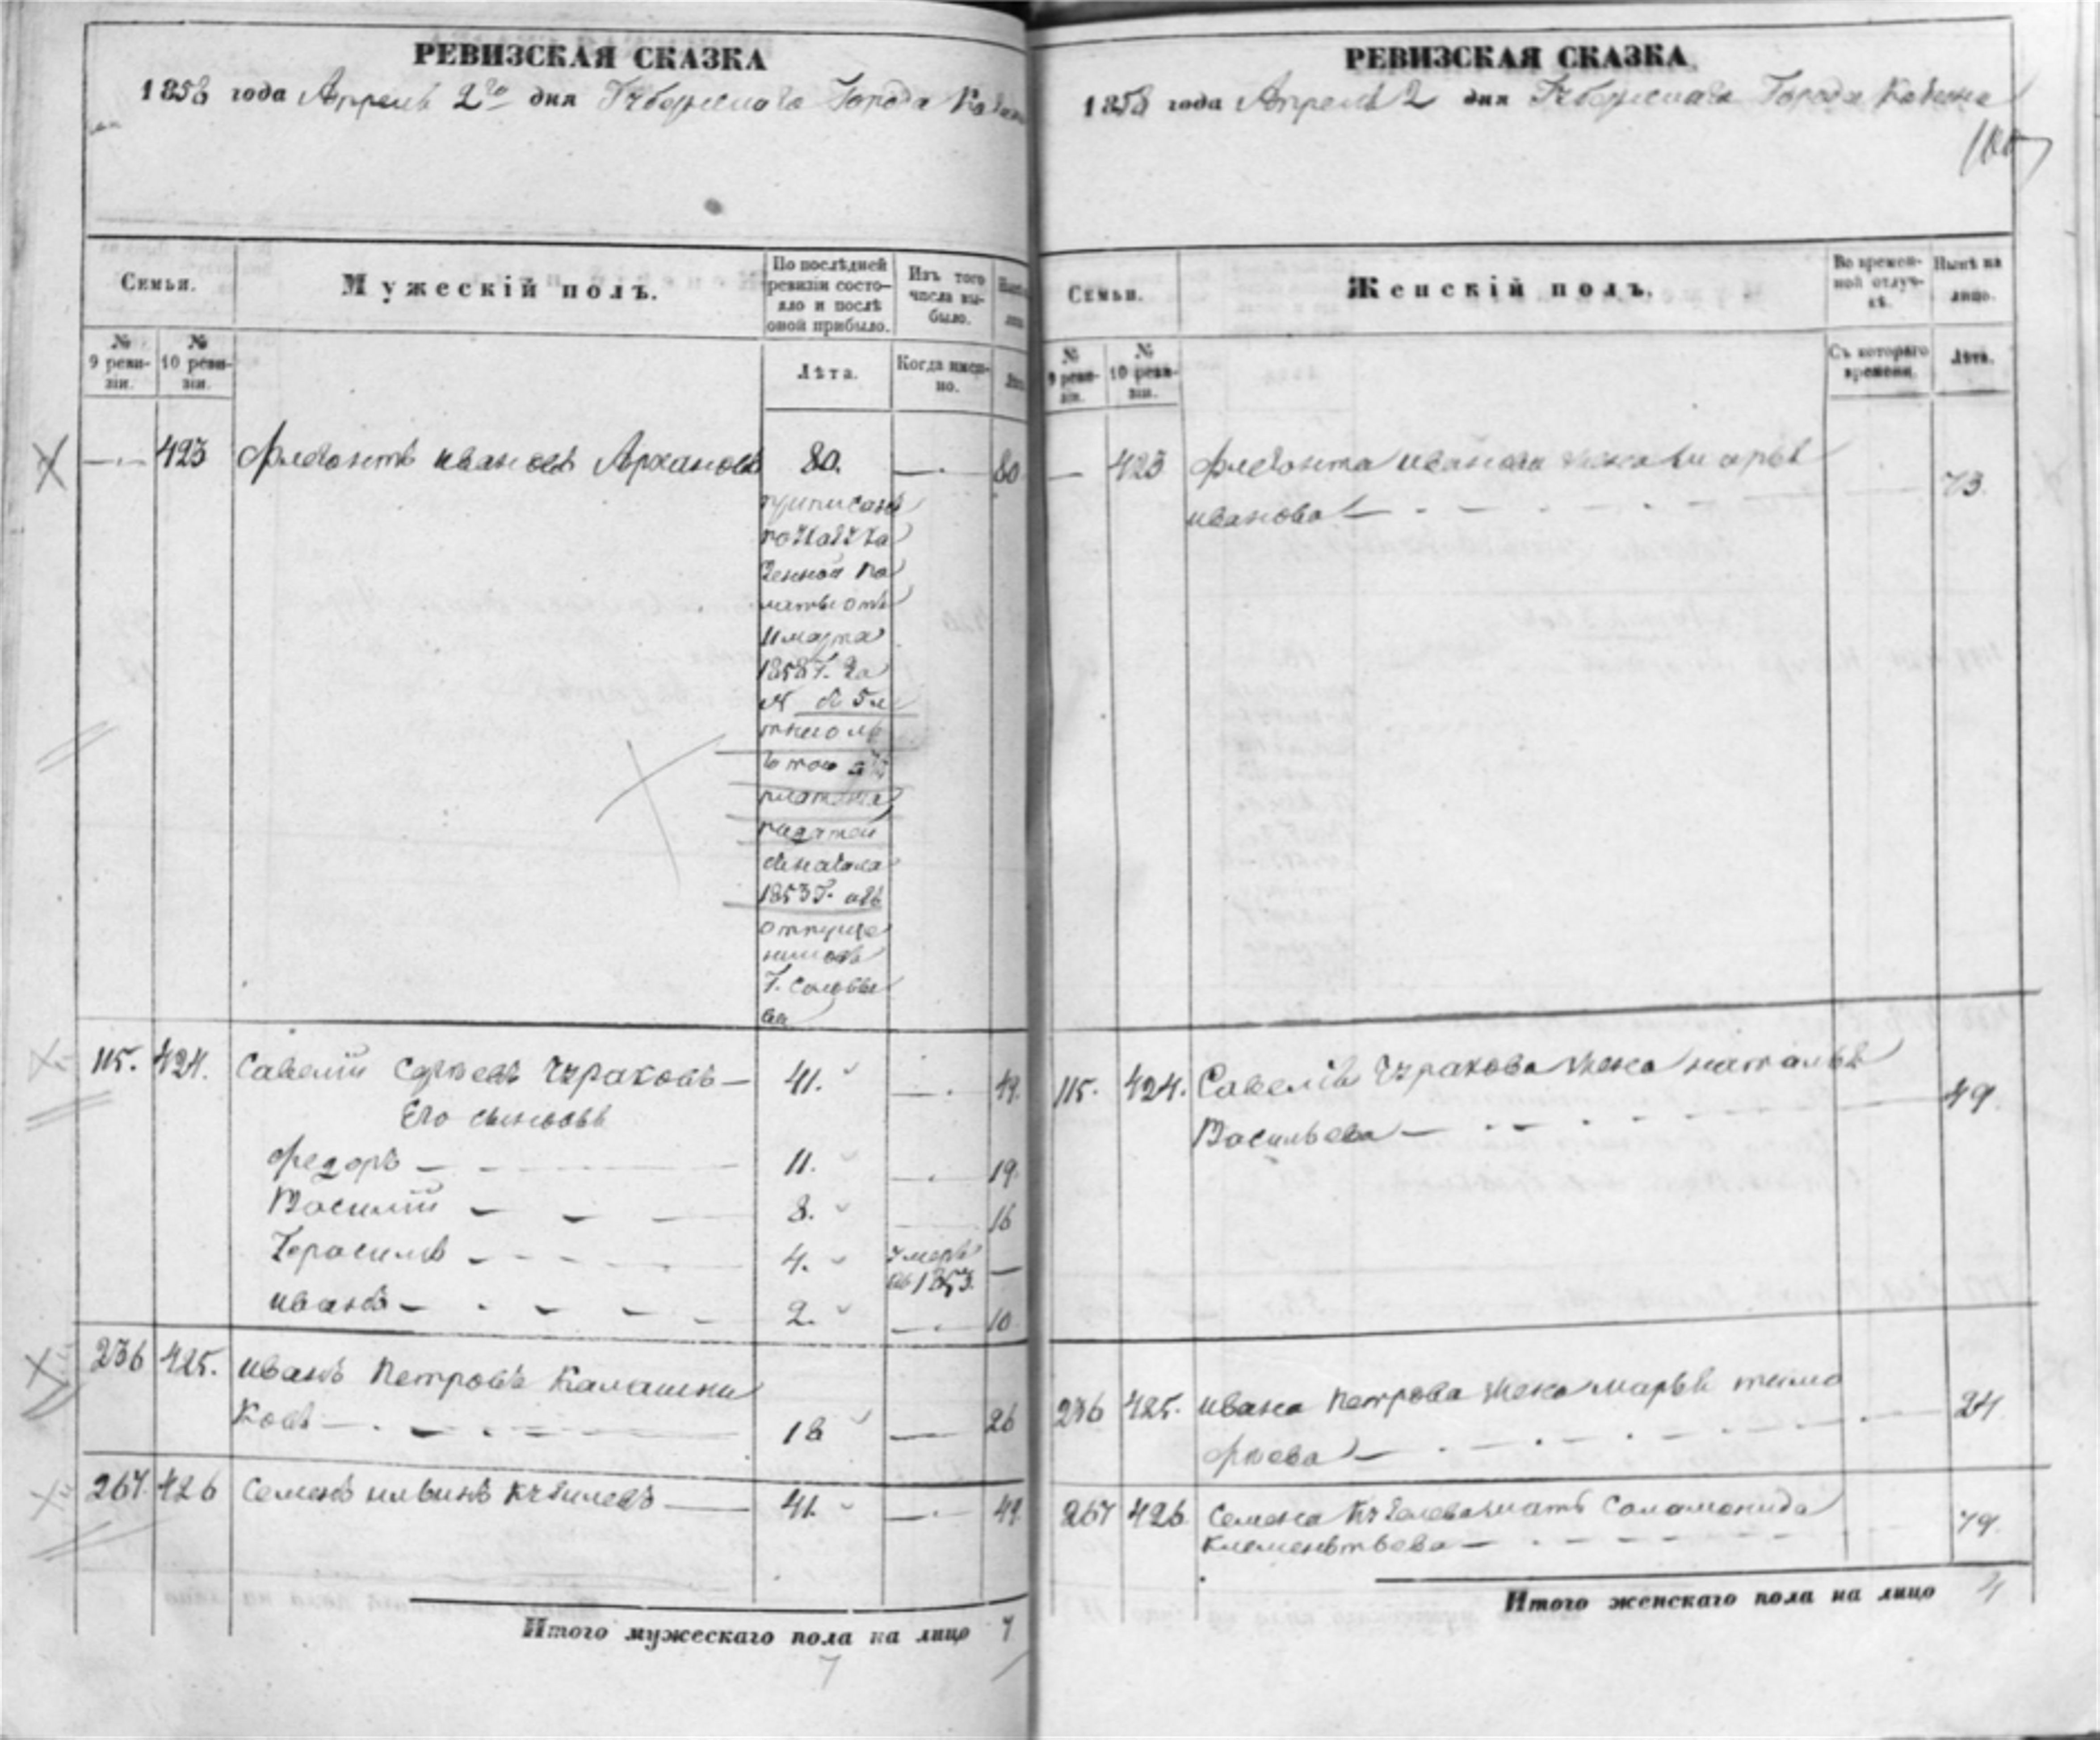 РЕВИЗСКАЯ СКАЗКА
1858 года Апреля 2го дня Губернскаго Города
Семьи.
Мужескій полъ.
По послѣдней ревизіи состояло и послѣ оной прибыло.
Изъ того числа выбыло.
№ 9 ревизіи.
№ 10 ревизіи.
Лѣта.
Когда именно.
423 Иванов 80. 80
приписанъ
по указу Ка
зенной Па
латы отъ
11 марта
1858 г. за
№
платежа
податей
1853 г. изъ
отпуще
никовъ
Г. Соловье
ва
115. 424. Савелій Сергеевъ Чураковъ — 41. 49.
Его сыновья
Федоръ — 11. 19.
Василий — 8. 16
Герасимъ — 4. умеръ —
въ 1853.
Иванъ — 2. 10
236 425. Иванъ Петровъ Калашни
ковъ — 18 26
267. 426 Семенъ Ильинъ — 41. 49.
Итого мужескаго пола на лицо 7
7
РЕВИЗСКАЯ СКАЗКА
1858 года Апреля 2 дня Губернскаго Города
Семьи.
Женскій полъ.
Во временной отлучкѣ.
Нынѣ на лицо.
№ 9 ревизіи.
№ 10 ревизіи.
Съ котораго времени.
Лѣта.
423 Иванова жена Марья 73
Иванова —
115. 424. Савелія Чуракова жена Наталья
Васильева — 49.
236 425. Ивана Петрова жена Марья Тимо
фѣева — 24
267 426. Семена мать Соломонида
Клементьева — 79.
Итого женскаго пола на лицо 4